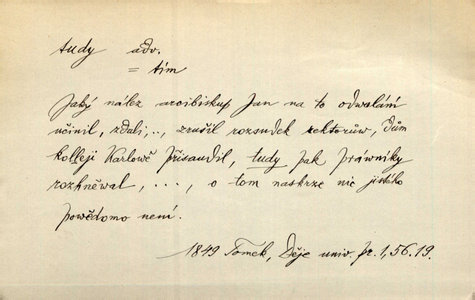 tudy adv.
= tím
Jaký nález arcibiskup Jan na to odwolání
učinil, zdali, .., zrušil rozsudek rektorůw, dům
kolleji Karlowě přisaudil, tudy pak práwníky
rozhněwal, ..., o tom naskrze nic jistého
powědomo není.
1849 Tomek, Děje univ. pr. 1, 56. 19.